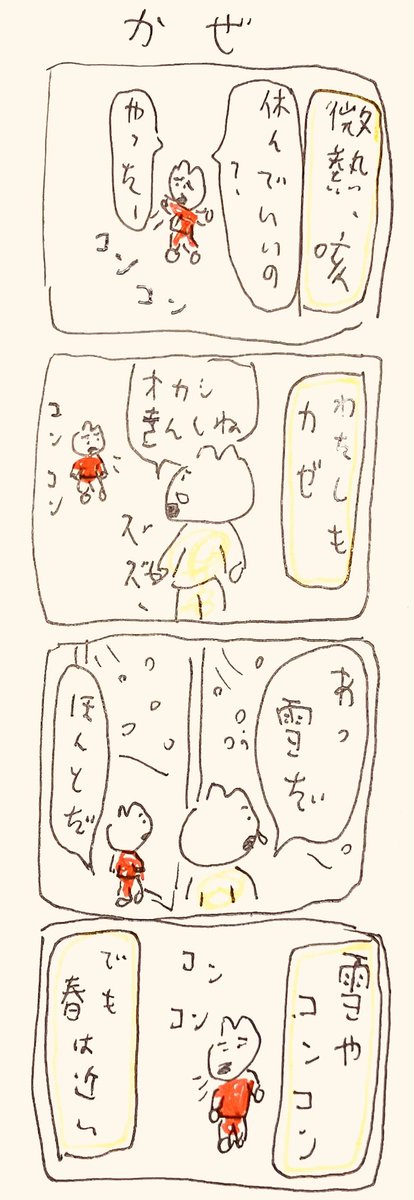 かぜ
微熱、咳
休んでいいの?
やったー
コン
コン
わたしも
カゼ
オカシ
きんしね
ズー
ズー
コン
コン
あっ
雪だ
ほんとだ
雪や
コンコン
コン
コン
でも
春は近い